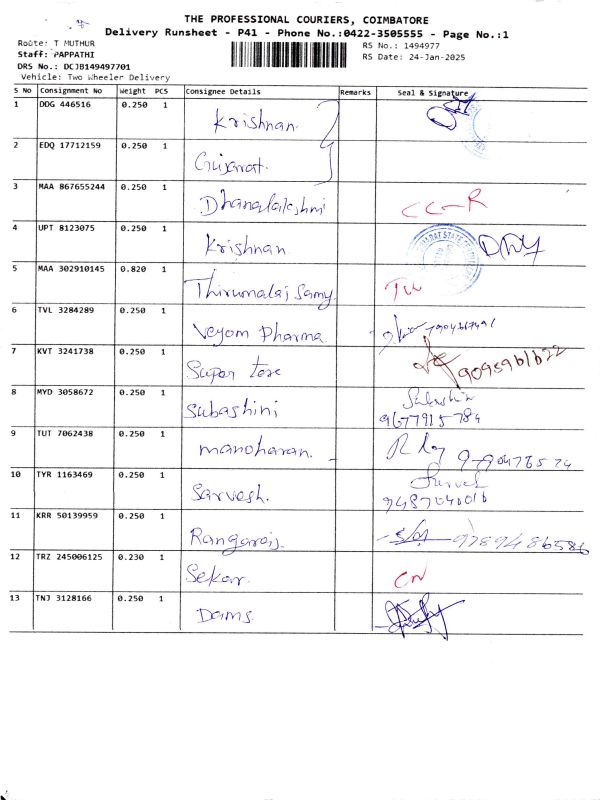 THE PROFESSIONAL COURIERS, COIMBATORE
Delivery Runsheet - P41 - Phone No.:0422-3505555 - Page No.:1
Route: T MUTHUR
RS No.: 1494977
Staff: PAPPATHI
RS Date: 24-Jan-2025
DRS No.: DCJB149497701
Vehicle: Two Wheeler Delivery
S No Consignment No Weight PCS Consignee Details Remarks Seal & Signature
1 DDG 446516 0.250 1 Krishnan.
2 EDQ 17712159 0.250 1 Gujarat.
3 MAA 867655244 0.250 1 Dhanalakshmi CC-R
4 UPT 8123075 0.250 1 Krishnan
5 MAA 302910145 0.820 1 Thirumalai Samy.
6 TVL 3284289 0.250 1 Veyom Pharma
7 KVT 3241738 0.250 1 Super Tex 9095961622
8 MYD 3058672 0.250 1 Subashini Subashini
9677915784
9 TUT 7062438 0.250 1 manoharan.
10 TYR 1163469 0.250 1 Sarvesh.
9487040016
11 KRR 50139959 0.250 1 Rangaraj. 9789486586
12 TRZ 245006125 0.230 1 Sekar. CN
13 TNJ 3128166 0.250 1 Dams.